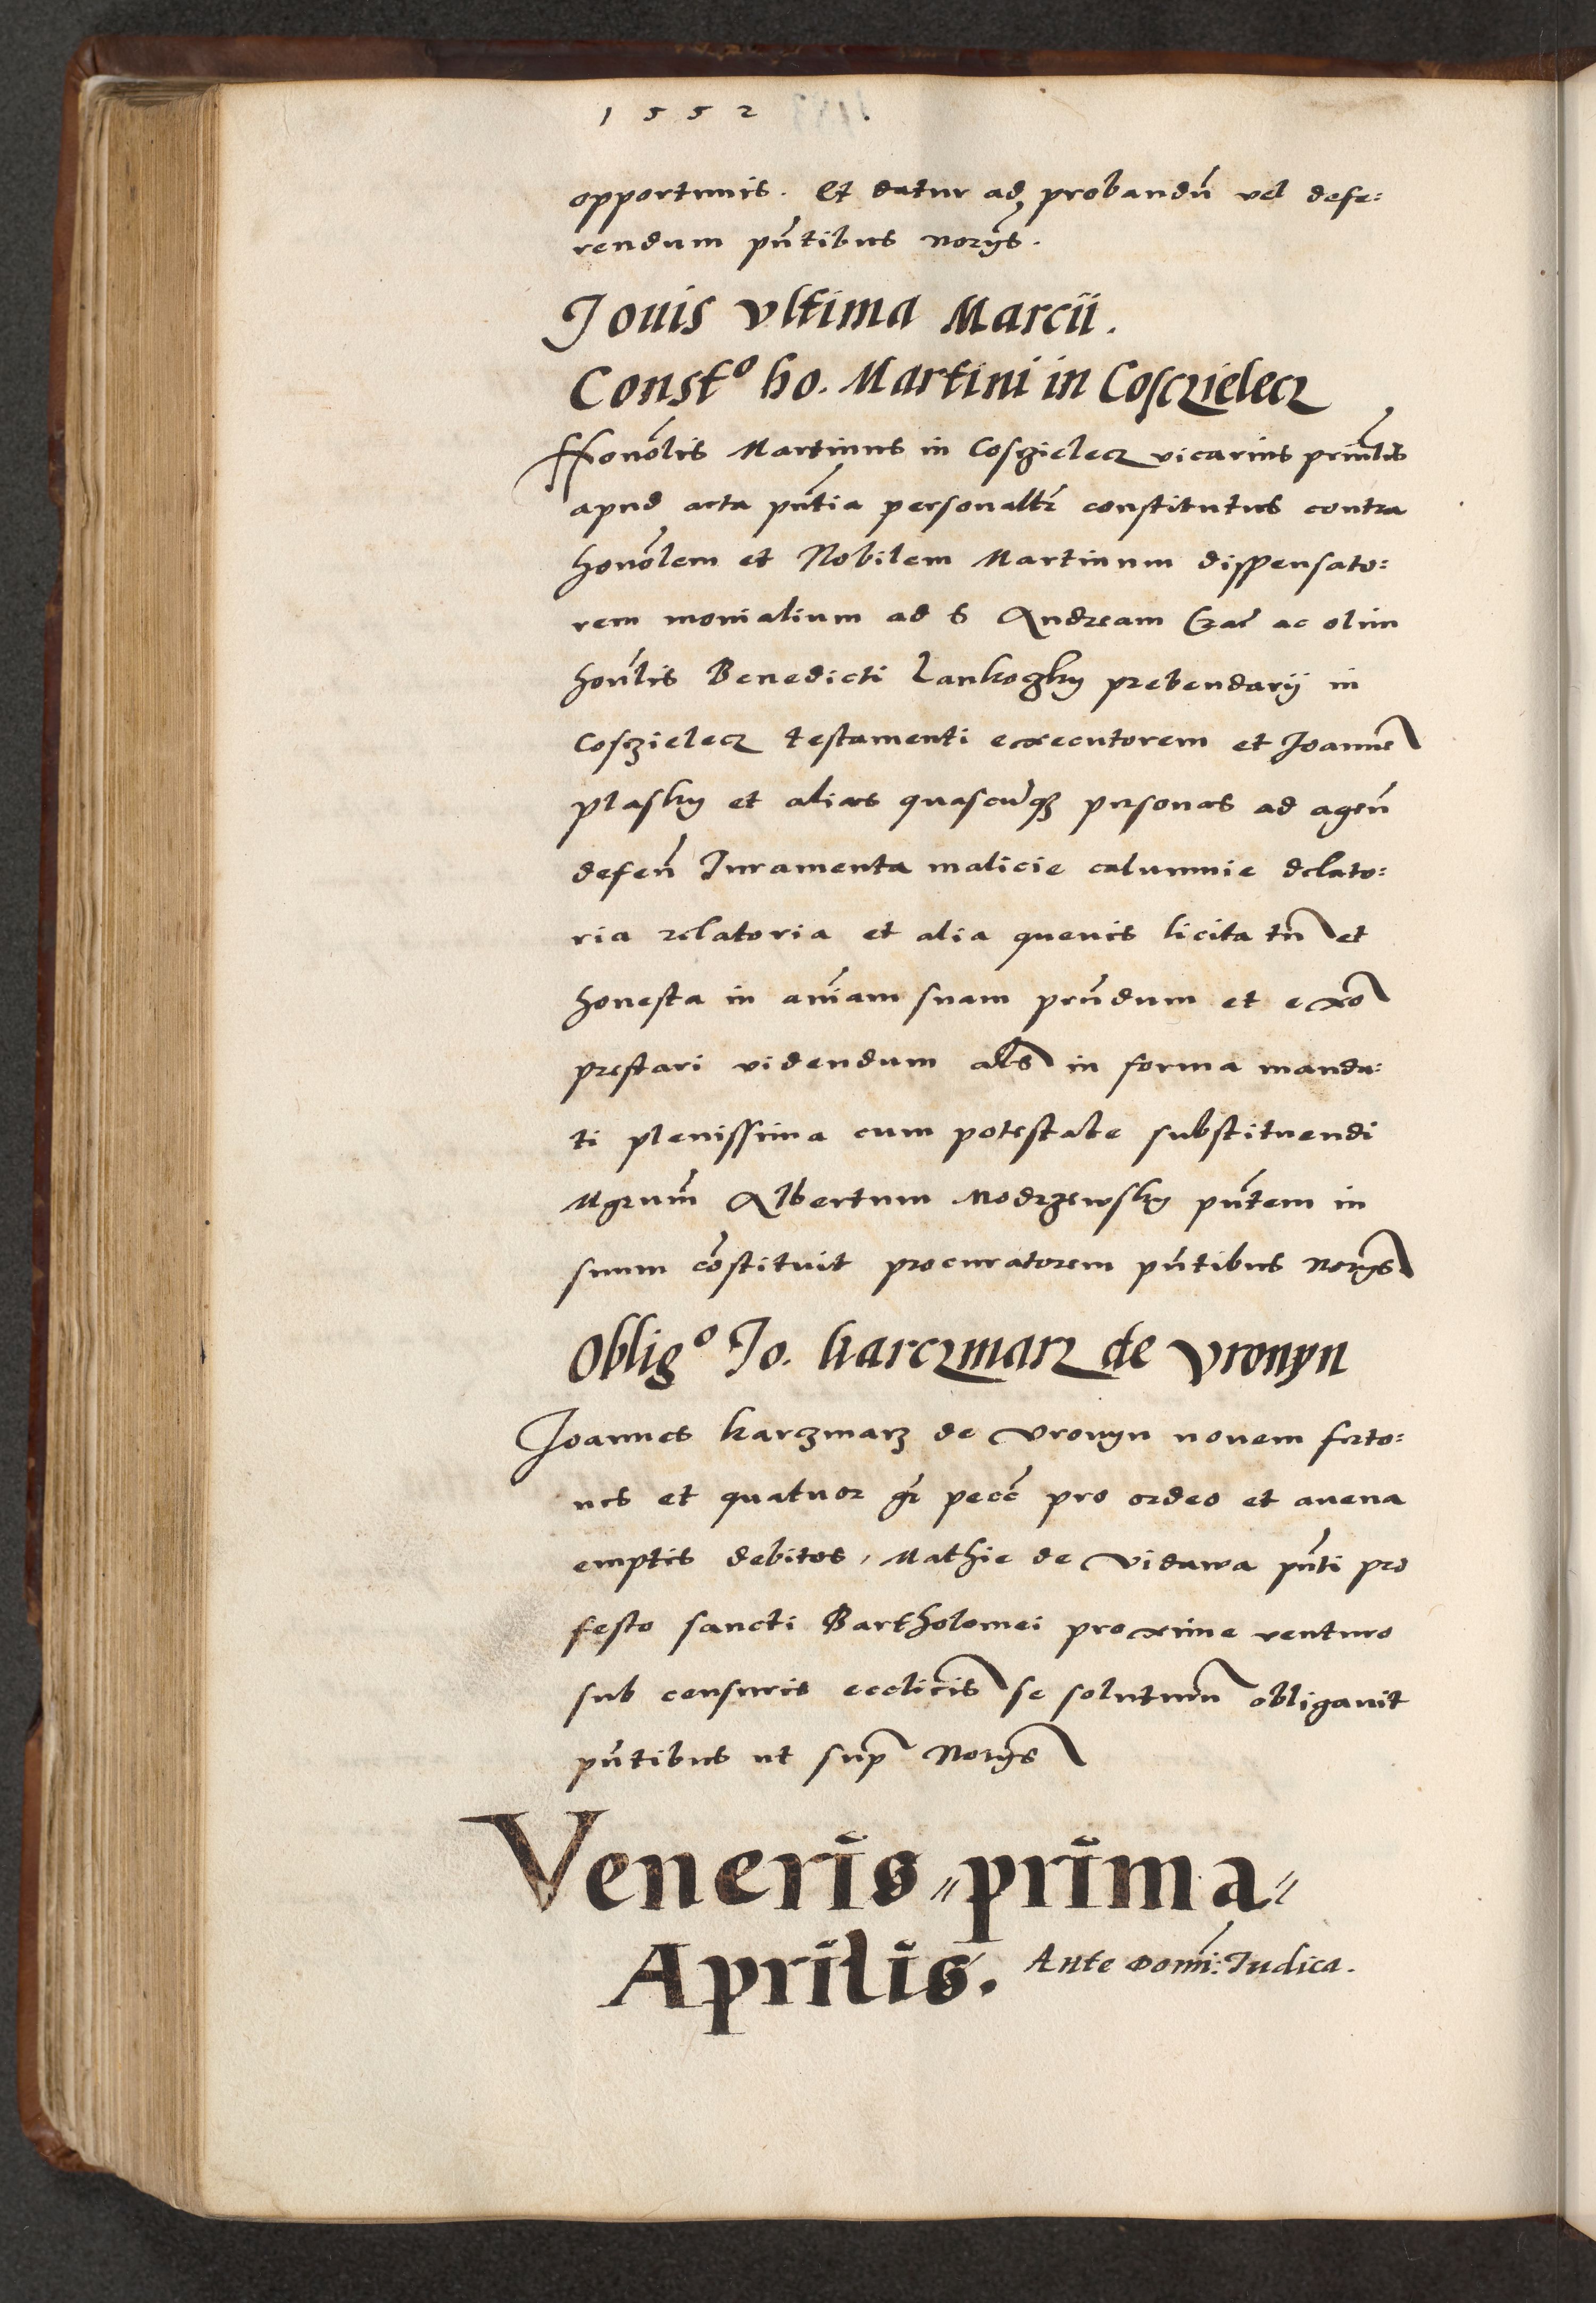 1552
opportunis. Et datur ad probandū vel defe:
rendum pn̄tibus norijs.
Jouis vltima Marcii.
Constº ho. Martini in Cosczielecz
Honōlis Martinus in Cosczielecz vicarius
apud acta pn̄tia personalr̄ constitutus contra
honōlem et Nobilem Martinum dispensato:
rem monialium ad S Andream ac olim
hon̄lis Benedicti Lankoczky prebendarij in
Cosczielecz testamenti executorem et Joannē
plasky et alias quascūqз personas ad agen̄
defen̄ Juramenta malicie calumnie delato:
ria relatoria et alia quevis licita tn̄ et
honesta in aīam suam prn̄dum et exo
prestari videndum als in forma manda:
ti plenissima cum potestate substituendi
Mgrum̄ Albertum Modrzewsky pn̄tem in
suum cōstituit procuratorem pn̄tibus norijs
Obligº Jo. karczmarz de Vronyn
Joannes karczmarz de Vronyn novem ferto:
nes et quatuor gr̄ pecē pro ordeo et auena
emptis debitos, Mathie de Vidawa pn̄ti pro
festo sancti Bartholomei proxime venturo
sub censuris eccliēis se soluturū obligauit
pn̄tibus ut sup̄ Norijs
Veneris prima
Aprilis. Ante Domī: Judica.